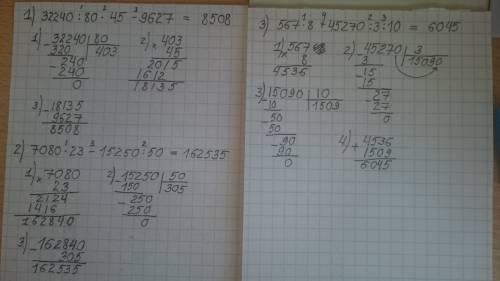 1) 32240 : 80 · 45 - 9627 = 8508
1) - 32240 | 80
320 | 403
- 240
240
0
2) × 403
45
2015
1612
18135
3) - 18135
9627
8508
2) 7080 · 23 - 15250 : 50 = 162535
1) × 7080
23
2124
1416
162840
2) - 15250 | 50
150 | 305
- 250
250
0
3) - 162840
305
162535
3) 567 · 8 + 45270 : 3 : 10 = 6045
1) × 567
8
4536
2) - 45270 | 3
3 | 15090
- 15
15
- 27
27
0
3) - 15090 | 10
10 | 1509
- 50
50
- 90
90
0
4) + 4536
1509
6045